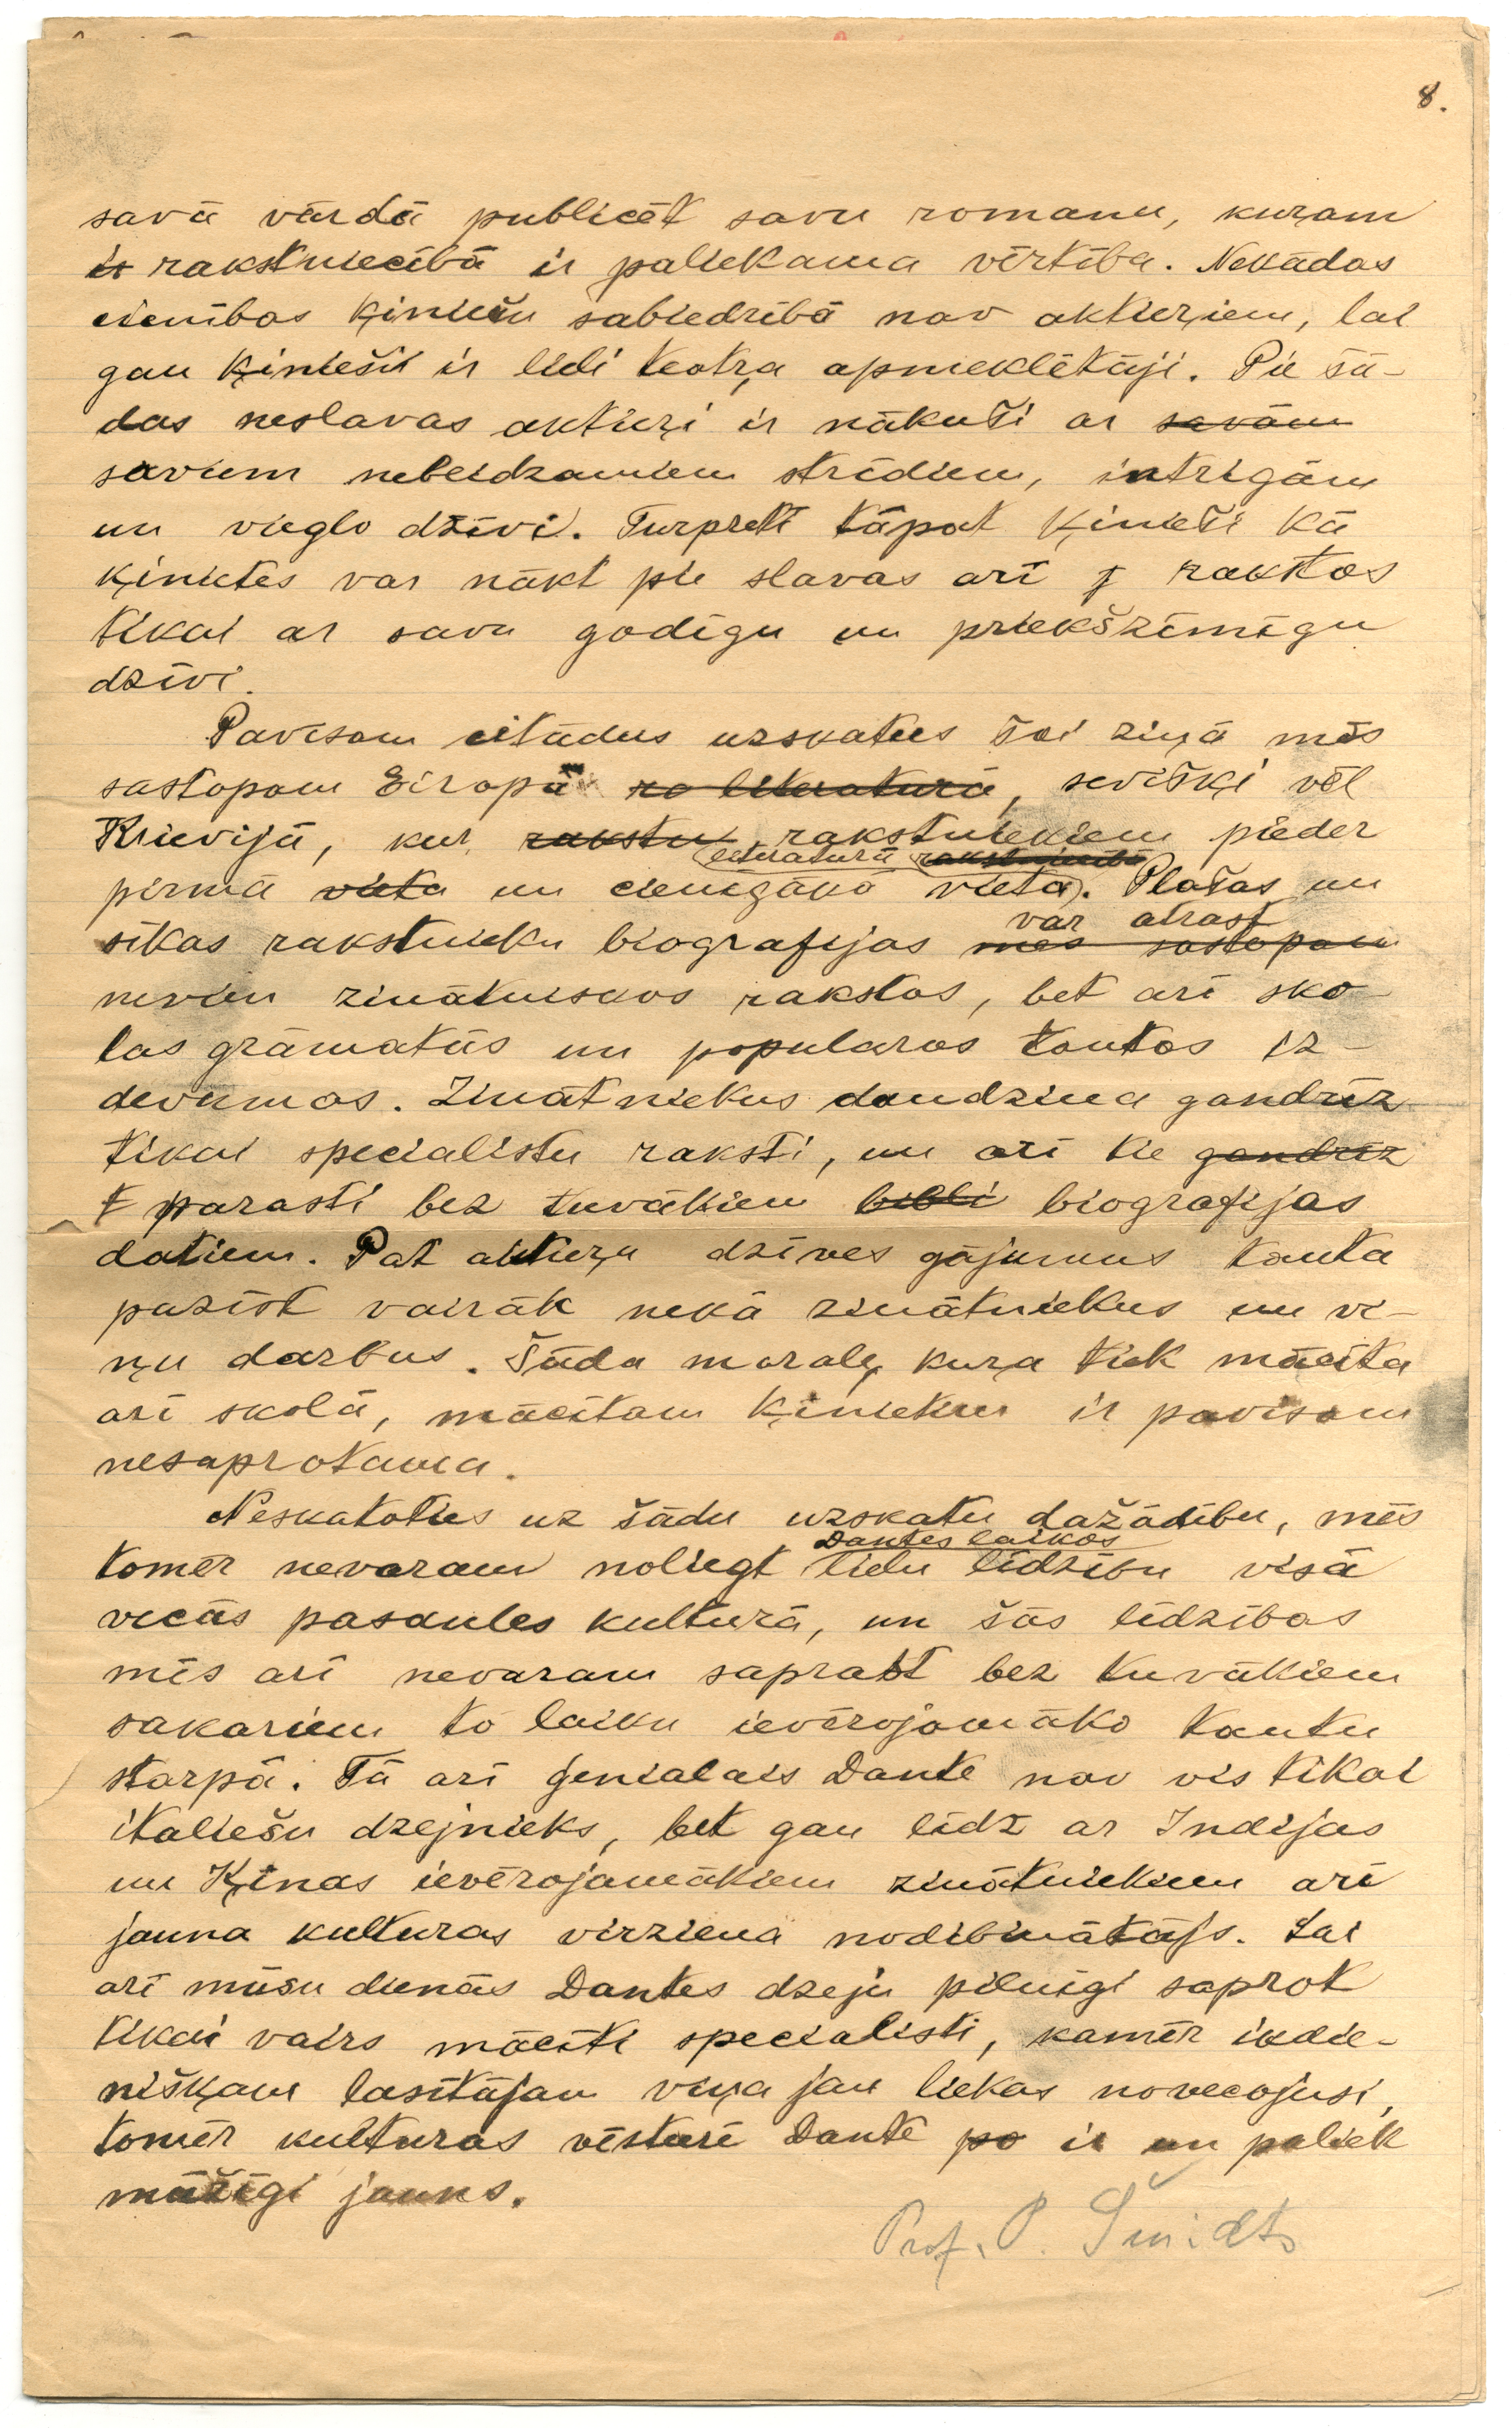 8.
savā vārdā publicēt savu romanu, kuŗam
ir rakstniecībā ir paliekama vērtība. Nekādas
cienības ķiniešu sabiedrībā nav aktieŗiem, lai
gan ķinieši ir lieli teatŗa apmeklētāji. Pie šā-
das neslavas aktieŗi ir nākuši ar savām
saviem nebeidzamiem strīdiem, intrigām
un vieglo dzīvi. Turpretī tāpat ķinieši kā
ķinietes var nākt pie slavas arī rakstos
tikai ar savu godīgu un priekšzīmīgu
dzīvi.
Pavisam citādus uzskatus šai ziņā mēs
sastopam Eiropā no literaturā, sevišķi vēl
Krievijā, kur rakstu rakstniekiem pieder
literaturā rakstniecībā
pirmā vieta un cienīgākā vieta. Plašas un
var atrast
sīkas rakstnieku biografijas mēs sastopam
nevien zinātniskos rakstos, bet arī sko-
las grāmatās un popularos tautas iz-
devumos. Zinātniekus daudzina gandrīz
tikai specialistu raksti, un arī tie gandrīz
t parasti bez tuvākiem bibli biografijas
datiem. Pat aktieŗu dzīves gājumus tauta
pazīst vairāk nekā zinātniekus un vi-
ņu darbus. Šāda morale, kuŗa tiek mācīta
arī skolā, mācītam ķinietim ir pavisam
nesaprotama.
Neskatoties uz šādu uzskatu dažādību, mēs
Dantes laikos
tomēr nevaram noliegt lielu līdzību visā
vecās pasaules kulturā, un šās līdzības
mēs arī nevaram saprast bez tuvākiem
sakariem to laiku ievērojamāko tautu
starpā. Tā arī ģenialais Dante nav vis tikai
italiešu dzejnieks, bet gan līdz ar Indijas
un Ķīnas ievērojamākiem zinātniekiem arī
jauna kulturas virziena nodibinātājs. Lai
arī mūsu dienās Dantes dzeju pilnīgi saprot
tikai vairs mācīti specialisti, kamēr ikdie-
nišķam lasītājam viņa jau liekas novecojusi,
tomēr kulturas vēsturē Dante pa ir un paliek
mūžīgi jauns.
Prof. P. Šmidts